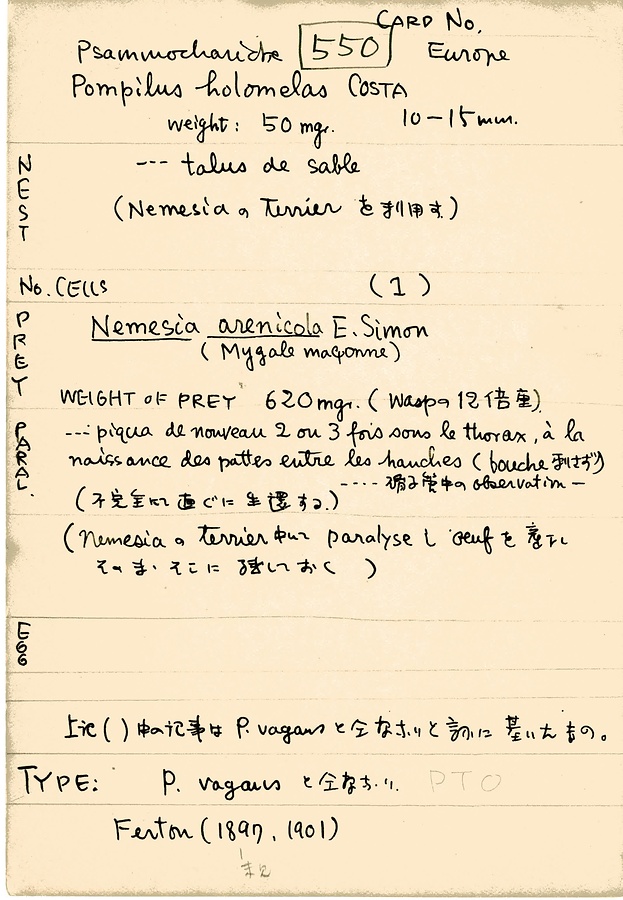 CARD No.
Psammocharidae 550 Europe
Pompilus holomelas COSTA
weight: 50 mgr. 10-15 mm.
NEST
--- talus de sable
(Nemesia の Terrier を利用す)
No. CELLS (1)
PREY
Nemesia arenicola E. Simon
(Mygale maçonne)
WEIGHT OF PREY 620 mgr. (Waspの12倍重)
PARAL.
--- piqua de nouveau 2 ou 3 fois sous le thorax, à la
naissance des pattes entre les hanches (bouche 刺さず)
---- 硝子管中の observation —
(不完全にて直ぐに生還する)
(Nemesia の terrier中にて paralyse し oeuf を産下し
そのまゝそこに残しておく )
EGG
上記 ( ) 中の記事は P. vagans と全なホリと 記に 基いたもの。
TYPE: P. vagans と全なホリ. PTO
Ferton (1897, 1901)